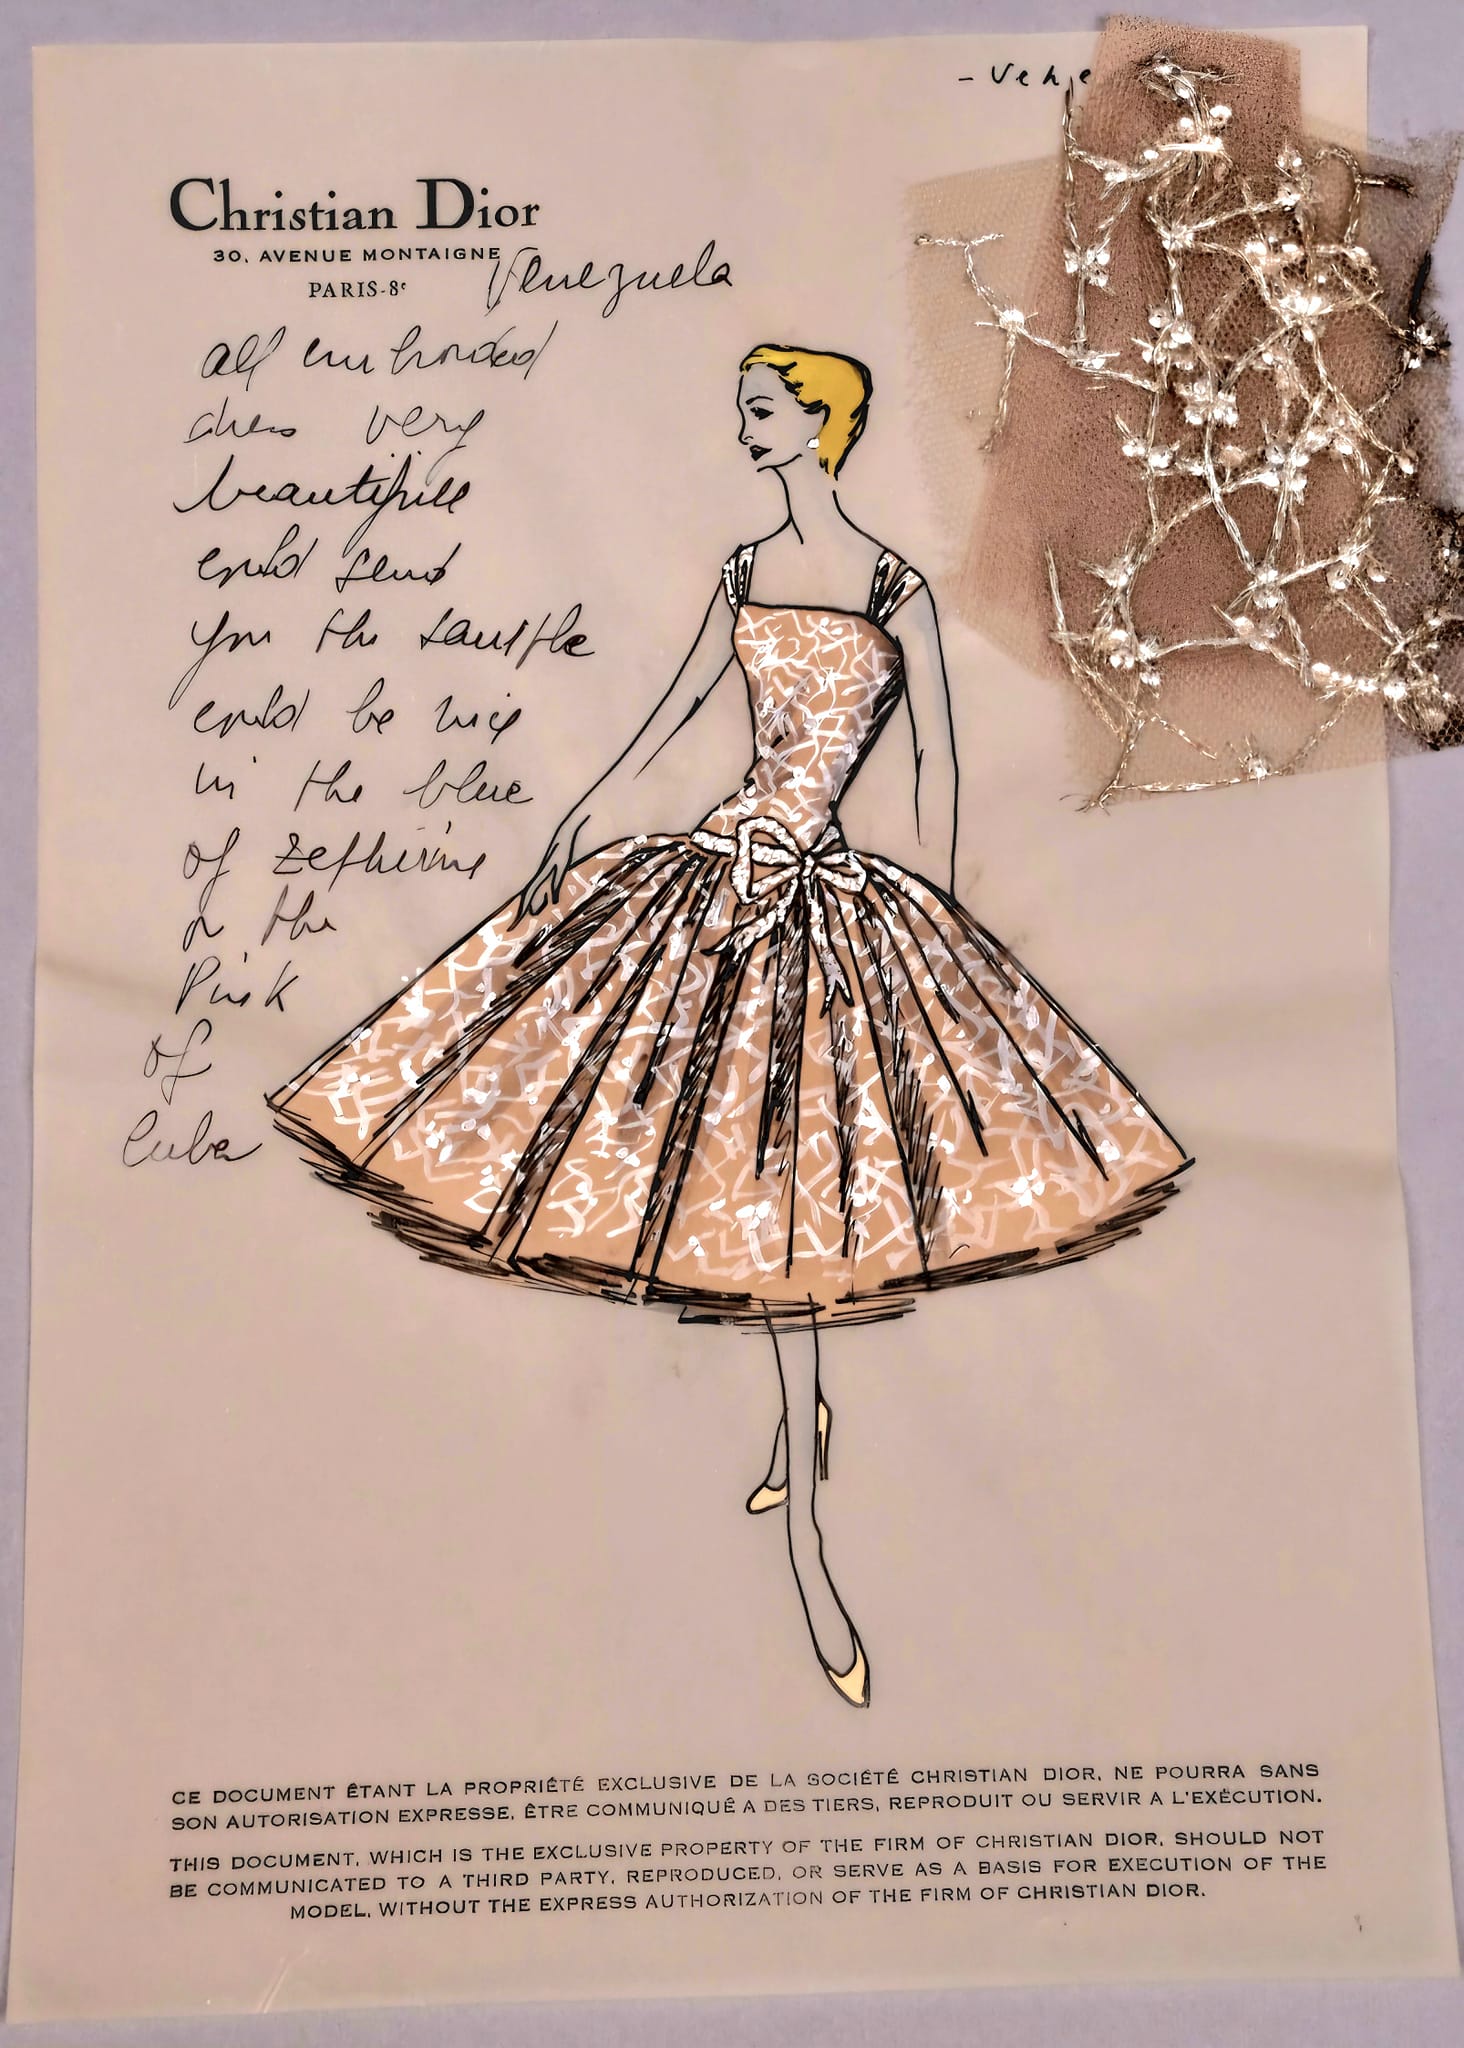 - Vene
Christian Dior
30, AVENUE MONTAIGNE
PARIS-8e
Venezuela
all embroided
dress very
beautifull
could send
you the sample
could be nice
in the blue
of Zepherine
or the
Pink
of
Cuba
CE DOCUMENT ÊTANT LA PROPRIÉTÉ EXCLUSIVE DE LA SOCIÉTÉ CHRISTIAN DIOR, NE POURRA SANS
SON AUTORISATION EXPRESSE, ÊTRE COMMUNIQUÉ A DES TIERS, REPRODUIT OU SERVIR A L'EXÉCUTION.
THIS DOCUMENT, WHICH IS THE EXCLUSIVE PROPERTY OF THE FIRM OF CHRISTIAN DIOR, SHOULD NOT
BE COMMUNICATED TO A THIRD PARTY, REPRODUCED, OR SERVE AS A BASIS FOR EXECUTION OF THE
MODEL, WITHOUT THE EXPRESS AUTHORIZATION OF THE FIRM OF CHRISTIAN DIOR.